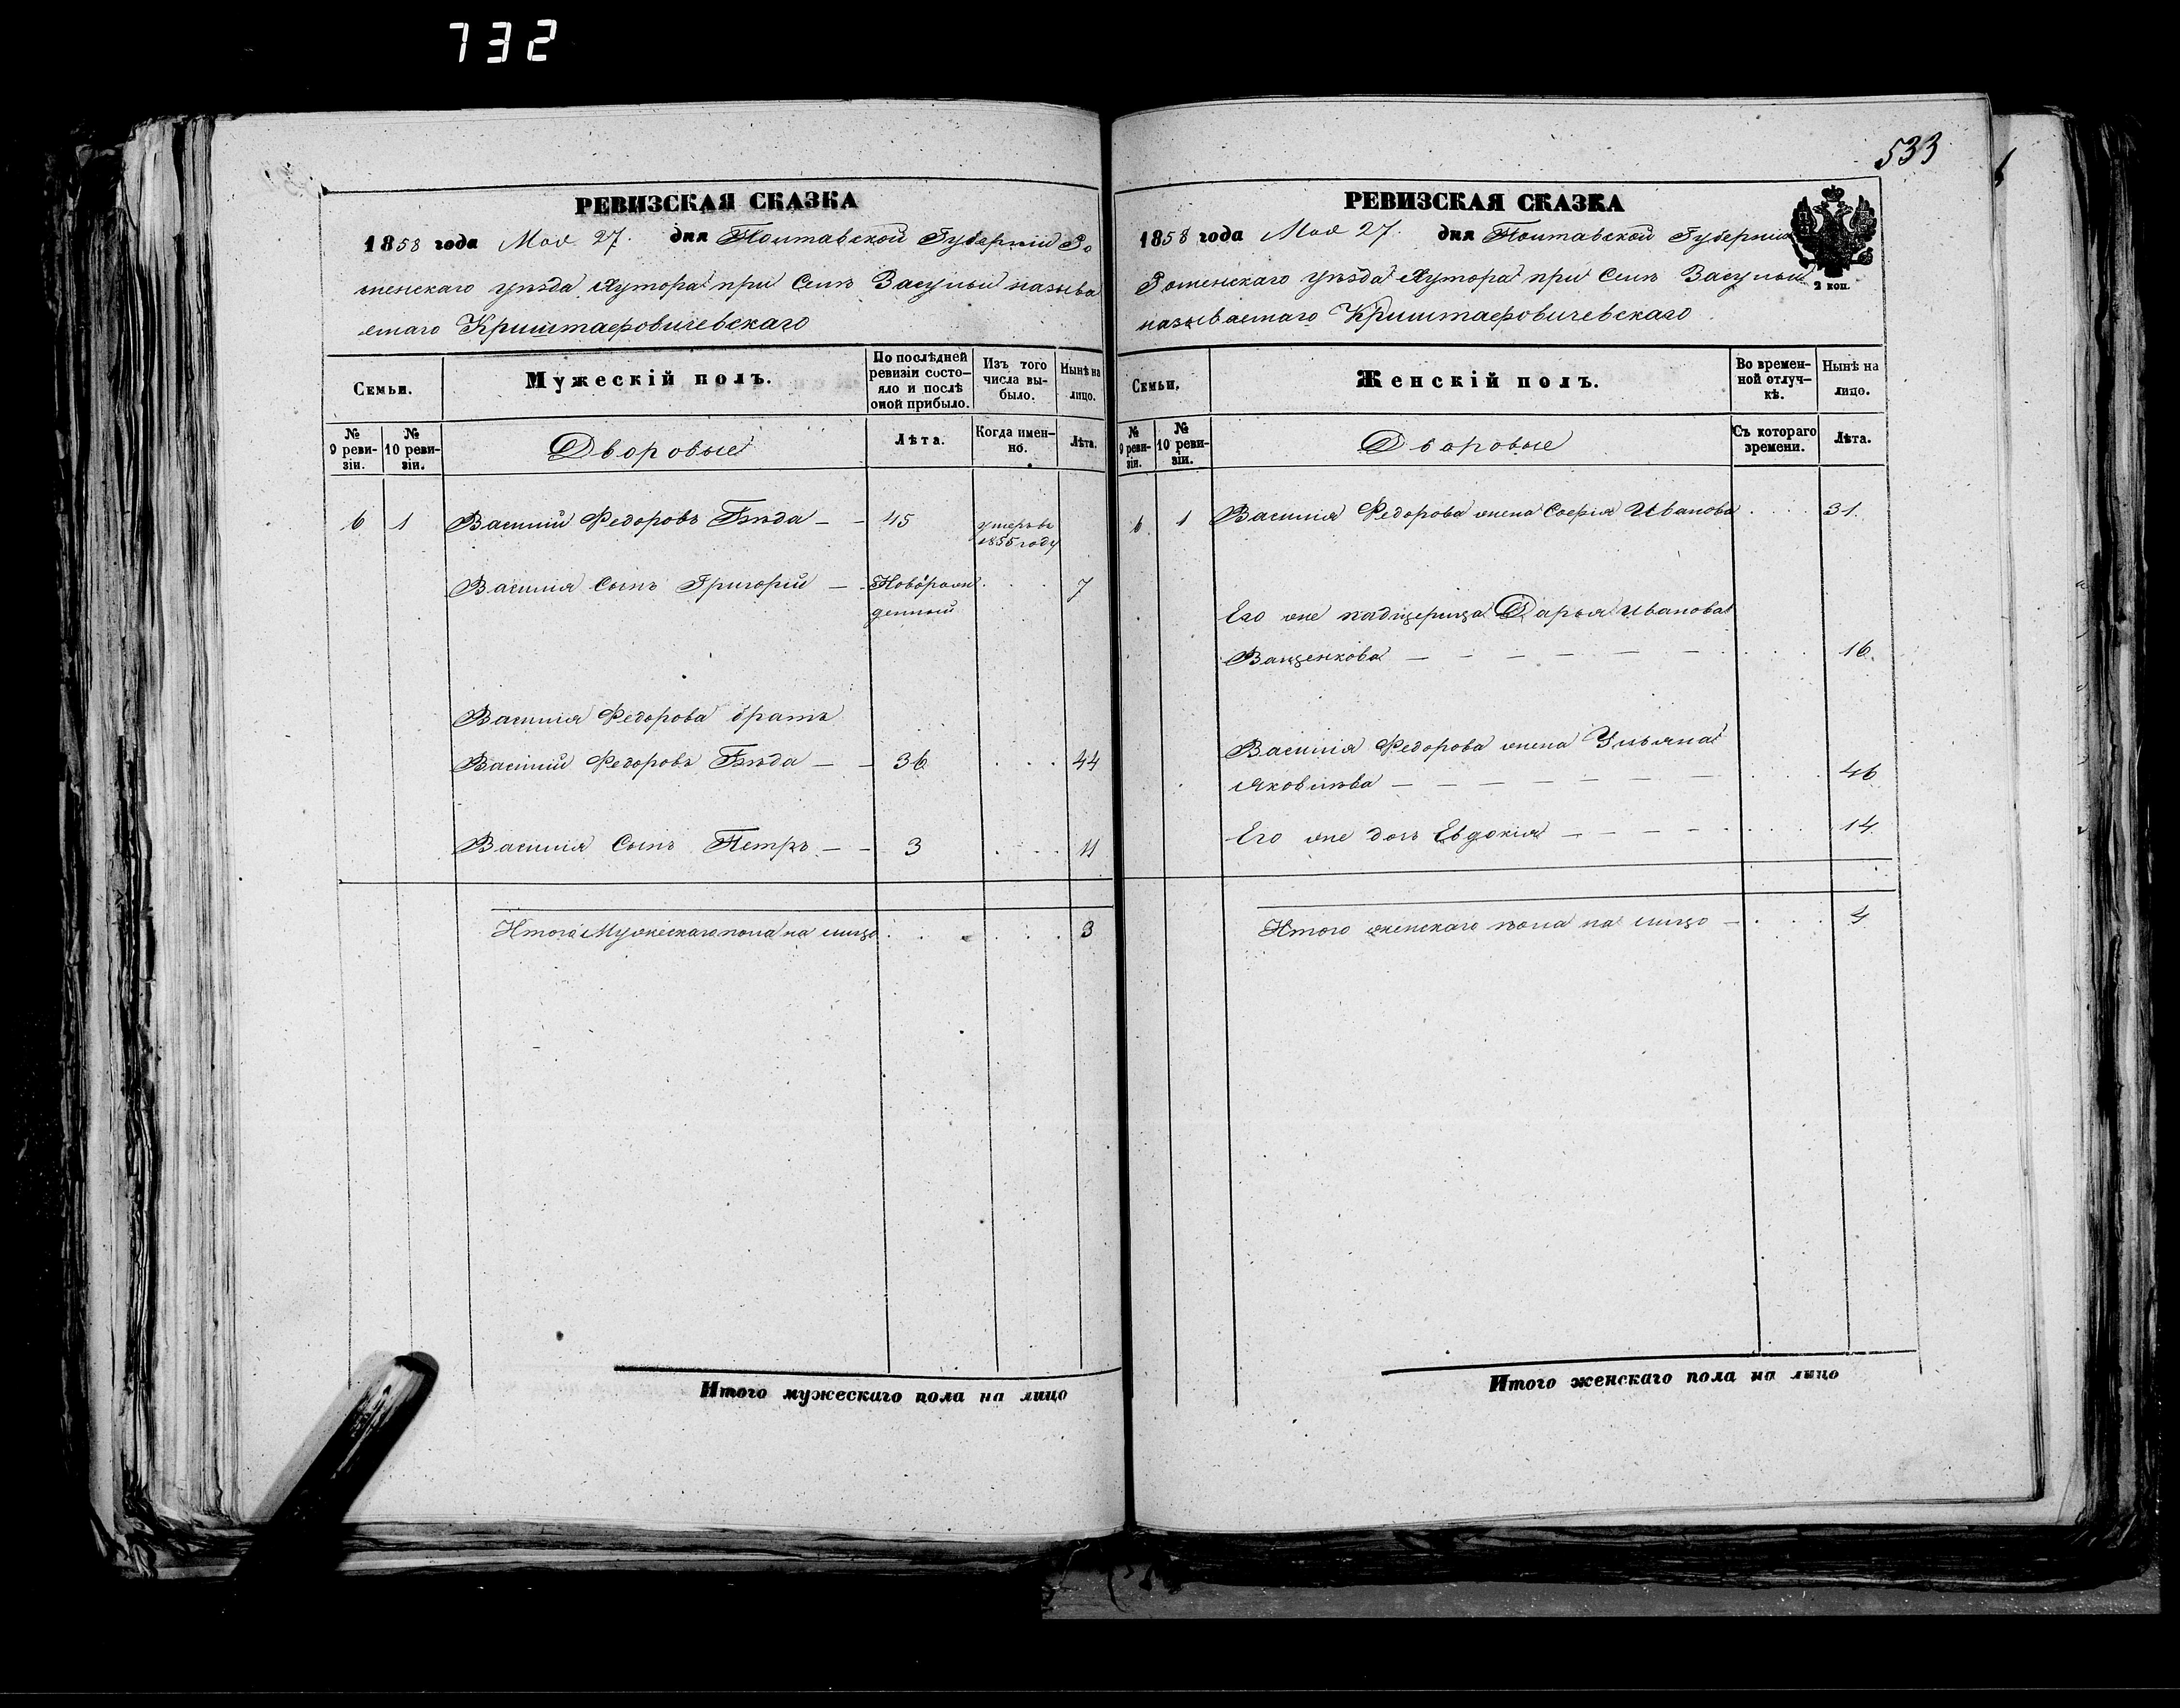 732
533
РЕВИЗСКАЯ СКАЗКА
1858 года Мая 27. дня Полтавской Губерніи Ро
менскаго уѣзда Хутора при Селѣ Засульи называ
емаго Криштафовичевскаго
Семьи.
Мужескій полъ.
По послѣдней
ревизіи состо-
яло и послѣ
оной прибыло.
Изъ того
числа вы-
было.
Нынѣ на
лицо.
№
9 реви-
зіи.
№
10 реви-
зіи.
Дворовые
Лѣта.
Когда имен-
но.
Лѣта.
6 1 Василій Федоровъ Бѣда — — 45 умеръ въ
1855 году
Василія Сынъ Григорій — Новорож . . . 7
денный
Василія Федорова братъ
Василій Федоровъ Бѣда — — 36 . . . 44
Василія Сынъ Петръ — — 3 . . . 11
Итого Мужескаго пола на лицо . . . . . . 3
Итого мужескаго пола на лицо
РЕВИЗСКАЯ СКАЗКА
1858 года Мая 27. дня Полтавской Губерніи
Роменскаго уѣзда Хутора при Селѣ Засульи
называемаго Криштафовичевскаго
2 коп.
Семьи.
Женскій полъ.
Во времен-
ной отлуч-
кѣ.
Нынѣ на
лицо.
№
9 реви-
зіи.
№
10 реви-
зіи.
Дворовые
Съ котораго
времени.
Лѣта.
6. 1 Василія Федорова жена Софія Иванова . . . 31.
Его же падщерица Дарья Иванова
Ващенкова — — — — — — . . . 16.
Василія Федорова жена Ульяна
Яковлѣва — — — — — . . . 46
Его же дочь Евдокія — — — — . . . 14
Итого женскаго пола на лицо — . . . 4
Итого женскаго пола на лицо